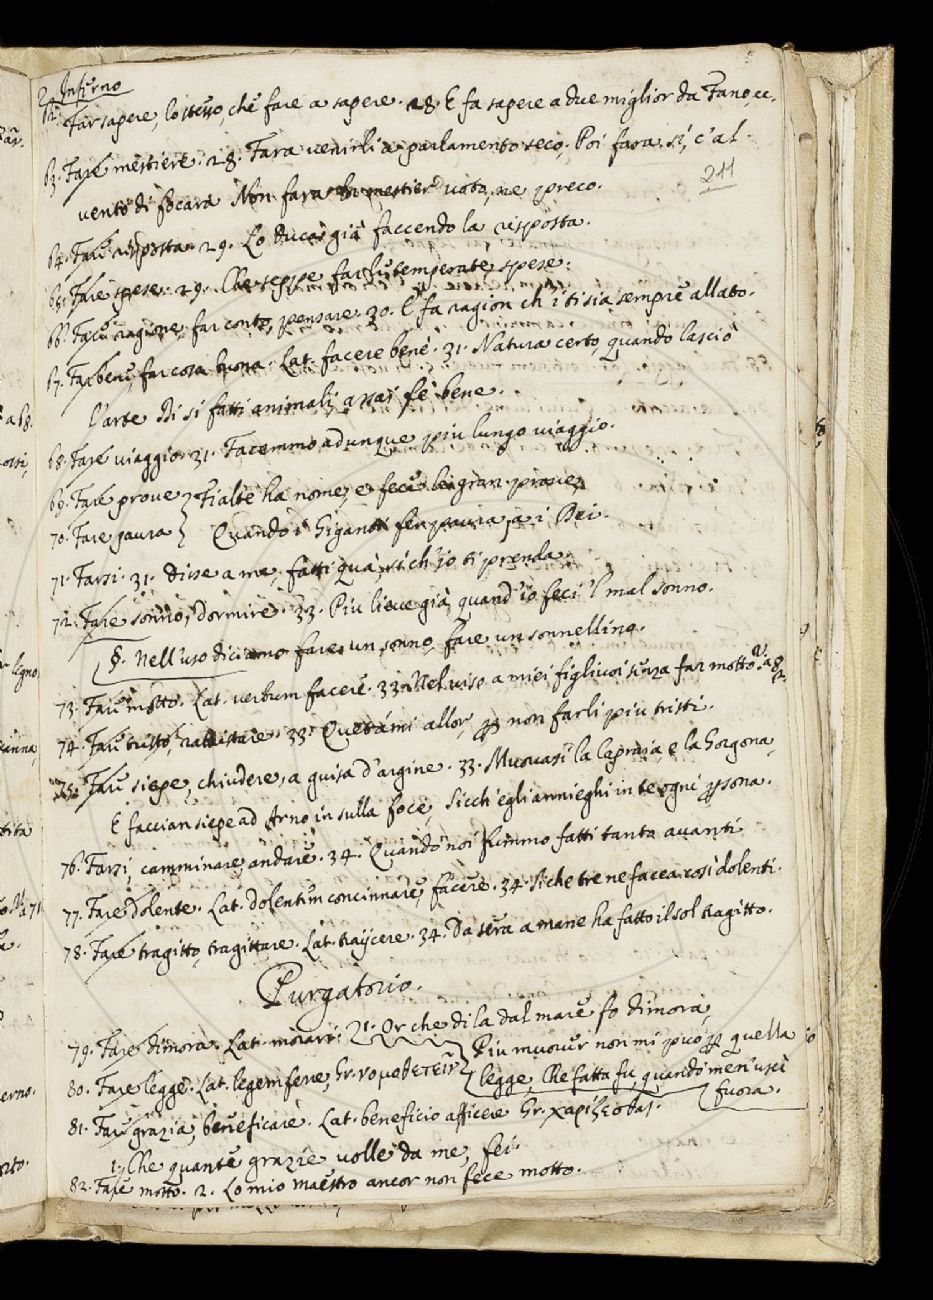 Inferno
62. Far sapere, lo stesso, che fare a sapere. 28. E fa sapere a due miglior da Fano, ec.
63. Fare mestiere. 28. Fara venirli a parlamento seco. Poi fara sì, c'al
211
vento di focara Non fara lor mestier voto, ne preco.
64. Fare risposta. 29. Lo duca già faccendo la risposta.
65. Fare spese. 29. Che seppe far le temperate spese.
66. Fare ragione, far conto, pensare. 30. E fa ragion ch'i ti sia sempre allato.
67. Far bene, far cosa buona. Lat. facere bene. 31. Natura certo, quando lasciò
l'arte Di sì fatti animali, assai fè bene.
68. Fare viaggio. 31. Facemmo adunque piu lungo viaggio.
69. Fare prove } Fialte ha nome, e fece le gran prove,
70. Fare paura } Quando i Giganti fer paura a i Dei.
71. Farsi. 31. Disse a me, fatti quà, sì ch'io ti prenda.
72. Fare sonno, dormire. 33. Piu lieve già, quand'io feci 'l mal sonno.
§. Nell'uso diciamo fare un sonno, fare un sonnellino.
73. Fare motto. Lat. verbum facere. 33. Nel viso a miei figliuoi senza far motto. V. a 82.
74. Fare tristo, rattristare. 33. Quetámi allor, ꝑ non farli piu tristi.
75. Fare siepe, chiudere, a guisa d'argine. 33. Muovasi la Capraia, e la Gorgona,
E faccian siepe ad Arno in sulla foce, Sicch'egli annieghi in te ogni ꝑsona.
76. Farsi, camminare, andare. 34. Quando noi fummo fatti tanto avanti
77. Fare dolente. Lat. dolentem concinnare, facere. 34. Sì che tre ne facea così dolenti.
78. Fare tragitto, tragittare. Lat. traijcere. 34. Da sera a mane ha fatto il sol tragitto.
Purgatorio.
79. Fare dimora. Lat. morari. 21. Or che di la dal mare fo dimora,
80. Fare legge. Lat. legem ferre, Gr. νομοθετεῖν } Piu muover non mi può ꝑ quella
legge, Che fatta fu, quando men'uscì
fuora.
81. Fare grazia, beneficare. Lat. beneficio afficere Gr. χαρίζεσθαι.
1. Che quante grazie volle da me, fei.
82. Fare motto. 2. Lo mio maestro ancor non fece motto.